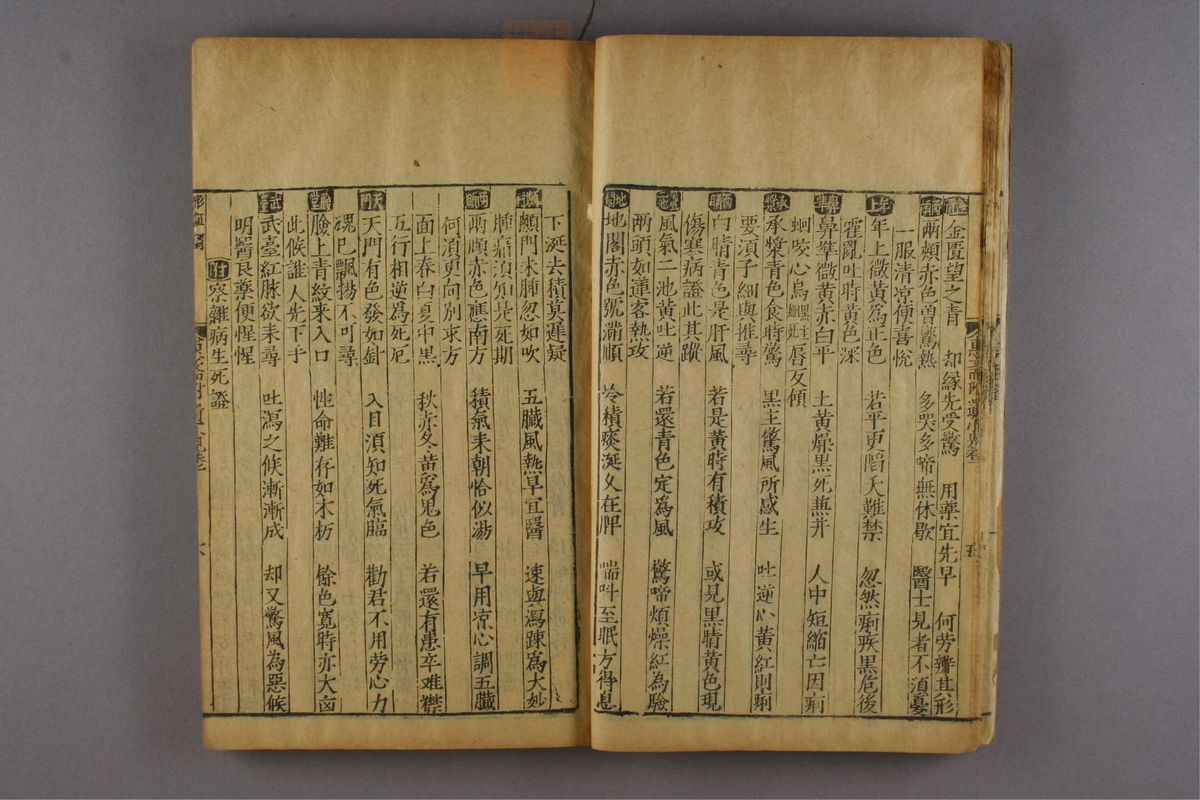 金匱望之青　却緣先受驚　用藥宜先早　何勞辨其形
兩頰赤色曽驚熱　多哭多啼無休歇　醫士見者不須憂
一服清凉便喜悅
年上 年上微黃爲正色　若平更䧟夭難禁　忽然痢疾黑危後
霍亂吐時黃色深
鼻準 鼻準微黃赤白平　土黃燥黑死無并　人中短縮亡因痢
蛔咬心烏蛔黑死唇反傾
承漿 承漿青色食時驚　黑主驚風所感生　吐逆心黃紅則痢
要須子細與推尋
兩睛 白睛青色是肝風　若是黃時有積攻　或見黑睛黃色現
傷寒病證此其蹤
風氣二池黃吐逆　若還青色定爲風　驚啼煩燥紅為驗
兩頭如蓮客熱攻
地閣 地閣赤色號滯順　冷積痰涎久在脾　喘呌至眠方得息
下涎去積莫遲疑
顖門 顖門未腫忽如吹　五臟風熱早宜醫　速與瀉踈爲大妙
腫痛須知是死期
兩顴 兩顴赤色應南方　積氣来朝恰似湯　早用凉心調五臟
何須更向別求方
面上春白夏中黑　秋赤冬黃為鬼色　若還有患卒难禁
五行相逆爲死厄
天門 天門有色發如針　入目須知死氣臨　勸君不用勞心力
魂已飄揚不可尋
臉堂 臉上青紋来入口　性命難存如木朽　餘色寬時亦大凶
此候誰人先下手
武臺 武臺紅脉欲来尋　吐瀉之候漸漸成　却又驚風為惡候
明醫良藥便惺惺
附 察雜病生死證